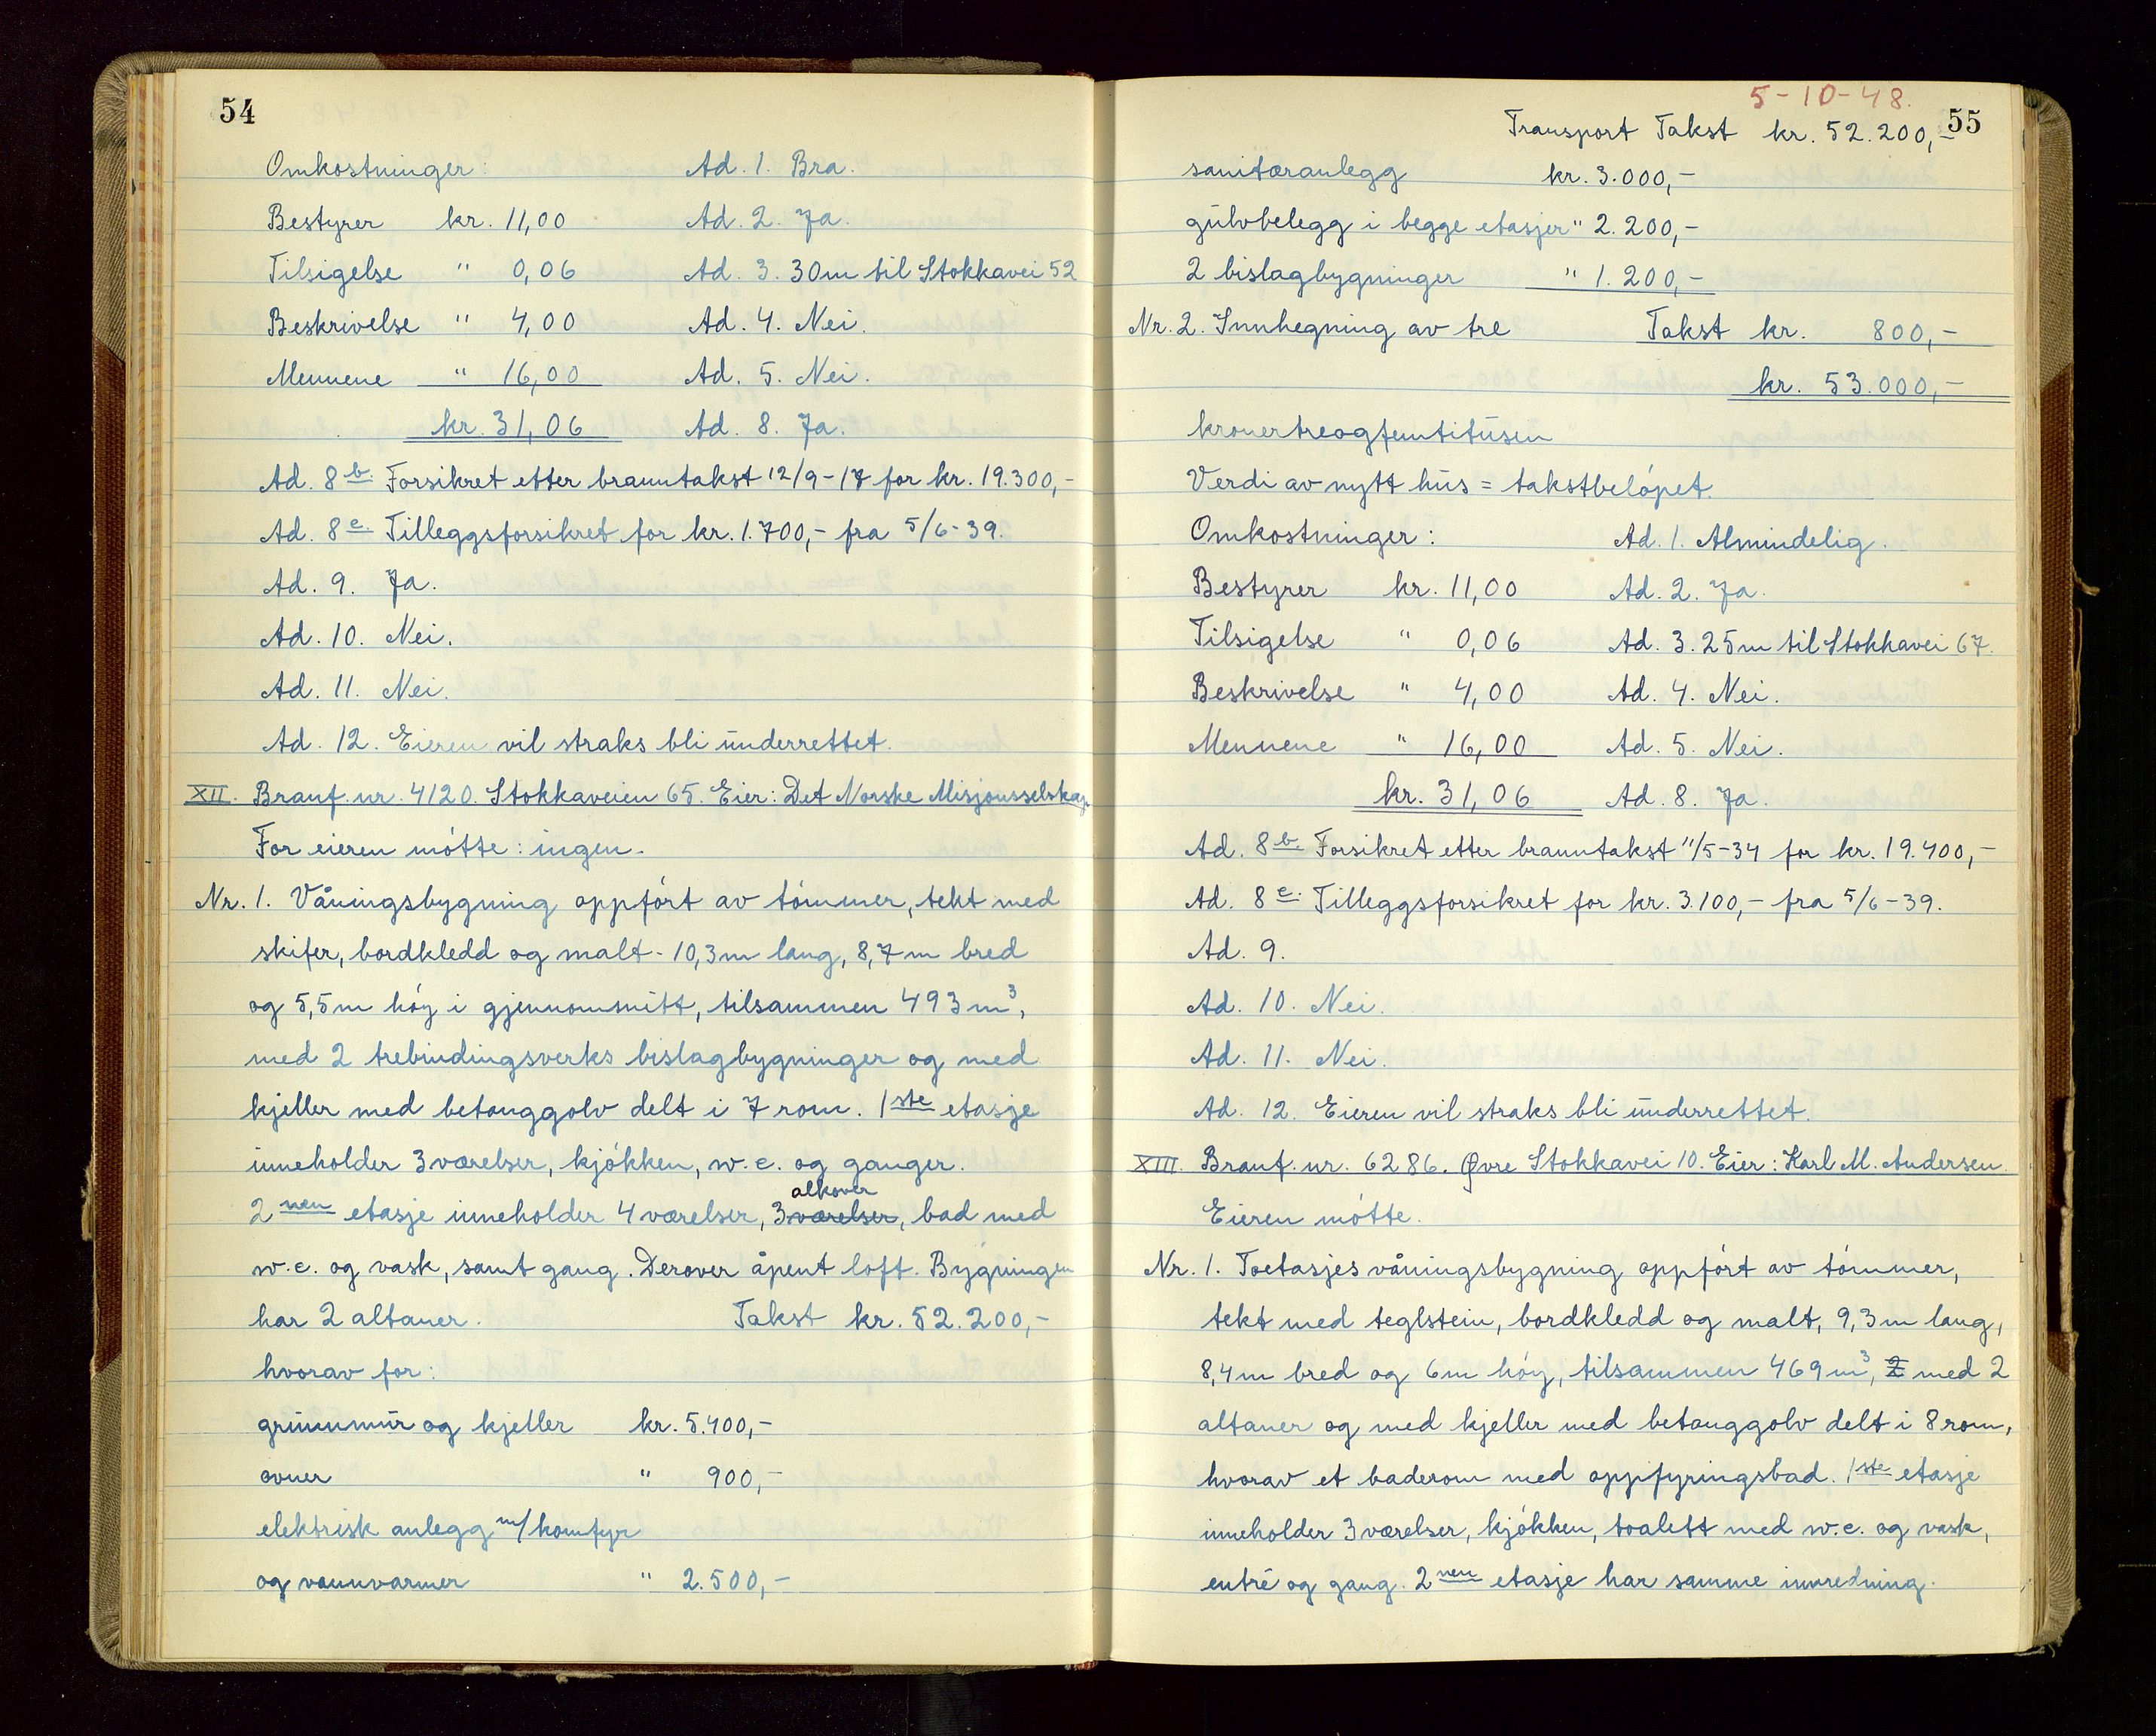 54
Omkostninger: Ad. 1. Bra.
Bestyrer kr. 11,00 Ad. 2. Ja.
Tilsigelse " 0,06 Ad. 3. 30m til Stokkavei 52
Beskrivelse " 4,00 Ad. 4. Nei.
Mennene " 16,00 Ad. 5. Nei.
kr. 31,06 Ad. 8. Ja.
Ad. 8 b. Forsikret etter branntakst 12/9-17 for kr. 19.300,-
Ad. 8 c. Tilleggsforsikret for kr. 1.700,- fra 5/6-39.
Ad. 9. Ja.
Ad. 10. Nei.
Ad. 11. Nei.
Ad. 12. Eieren vil straks bli underrettet.
XII. Branf. nr. 4120. Stokkaveien 65. Eier: Det Norske Misjonsselskap.
For eieren møtte: ingen.
Nr. 1. Våningsbygning oppført av tømmer, tekt med
skifer, bordkledd og malt - 10,3m lang, 8,7m bred
og 5,5m høy i gjennomsnitt, tilsammen 493m³,
med 2 trebindingsverks bislagbygninger og med
kjeller med betonggolv delt i 7 rom. 1ste etasje
inneholder 3 værelser, kjøkken, w.c. og ganger.
2nen etasje inneholder 4 værelser, 3 værelser alkover, bad med
w.c. og vask, samt gang. Derover åpent loft. Bygningen
har 2 altaner. Takst kr. 52.200,-
hvorav for:
grunnmur og kjeller kr. 5.400,-
ovner " 900,-
elektrisk anlegg m/komfyr
og vannvarmer " 2.500,-
5-10-48.
55
Transport Takst kr. 52.200,-
sanitæranlegg kr. 3.000,-
gulvbelegg i begge etasjer " 2.200,-
2 bislagbygninger " 1.200,-
Nr. 2. Innhegning av tre Takst kr. 800,-
kr. 53.000,-
kronertreogfemtitusen
Verdi av nytt hus = takstbeløpet.
Omkostninger: Ad. 1. Almindelig.
Bestyrer kr. 11,00 Ad. 2. Ja.
Tilsigelse " 0,06 Ad. 3. 25m til Stokkavei 67.
Beskrivelse " 4,00 Ad. 4. Nei.
Mennene " 16,00 Ad. 5. Nei.
kr. 31,06 Ad. 8. Ja.
Ad. 8 b. Forsikret etter branntakst 11/5-34 for kr. 19.400,-
Ad. 8 c. Tilleggsforsikret for kr. 3.100,- fra 5/6-39.
Ad. 9.
Ad. 10. Nei.
Ad. 11. Nei.
Ad. 12. Eieren vil straks bli underrettet.
XIII. Branf. nr. 6286. Øvre Stokkavei 10. Eier: Karl M. Andersen.
Eieren møtte.
Nr. 1. Toetasjes våningsbygning oppført av tømmer,
tekt med teglstein, bordkledd og malt, 9,3m lang,
8,4m bred og 6m høy, tilsammen 469m³, 2 med 2
altaner og med kjeller med betonggolv delt i 8 rom,
hvorav et baderom med oppfyringsbad. 1ste etasje
inneholder 3 værelser, kjøkken, toalett med w.c. og vask,
entré og gang. 2nen etasje har samme innredning.